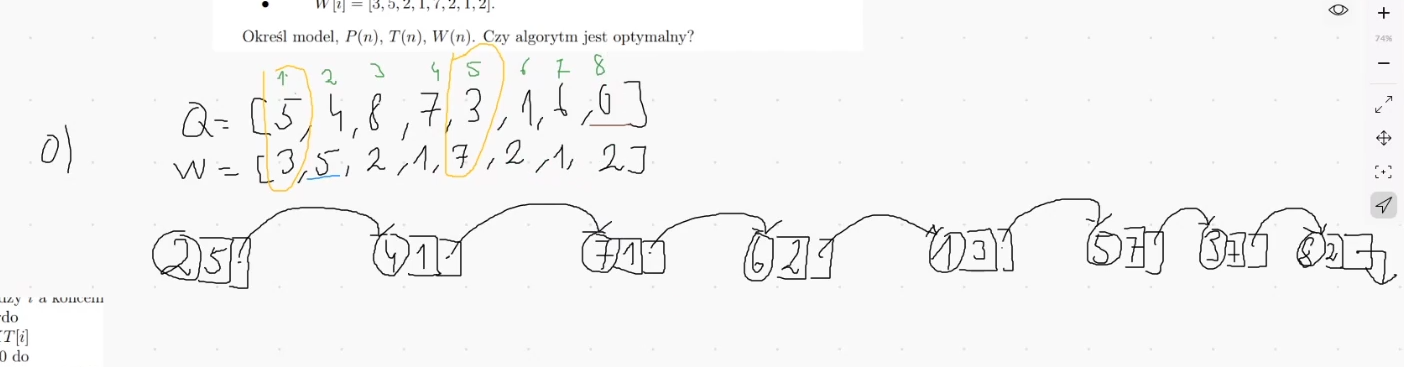 W[i] = [3, 5, 2, 1, 7, 2, 1, 2].
Określ model, P(n), T(n), W(n). Czy algorytm jest optymalny?
74%
1 2 3 4 5 6 7 8
Q = [5, 4, 8, 7, 3, 1, 6, 0]
0)
W = [3, 5, 2, 1, 7, 2, 1, 2]
2 5 4 1 7 1 6 2 1 3 5 7 3 7 8 2
i a końcem
do
T[i]
0 do